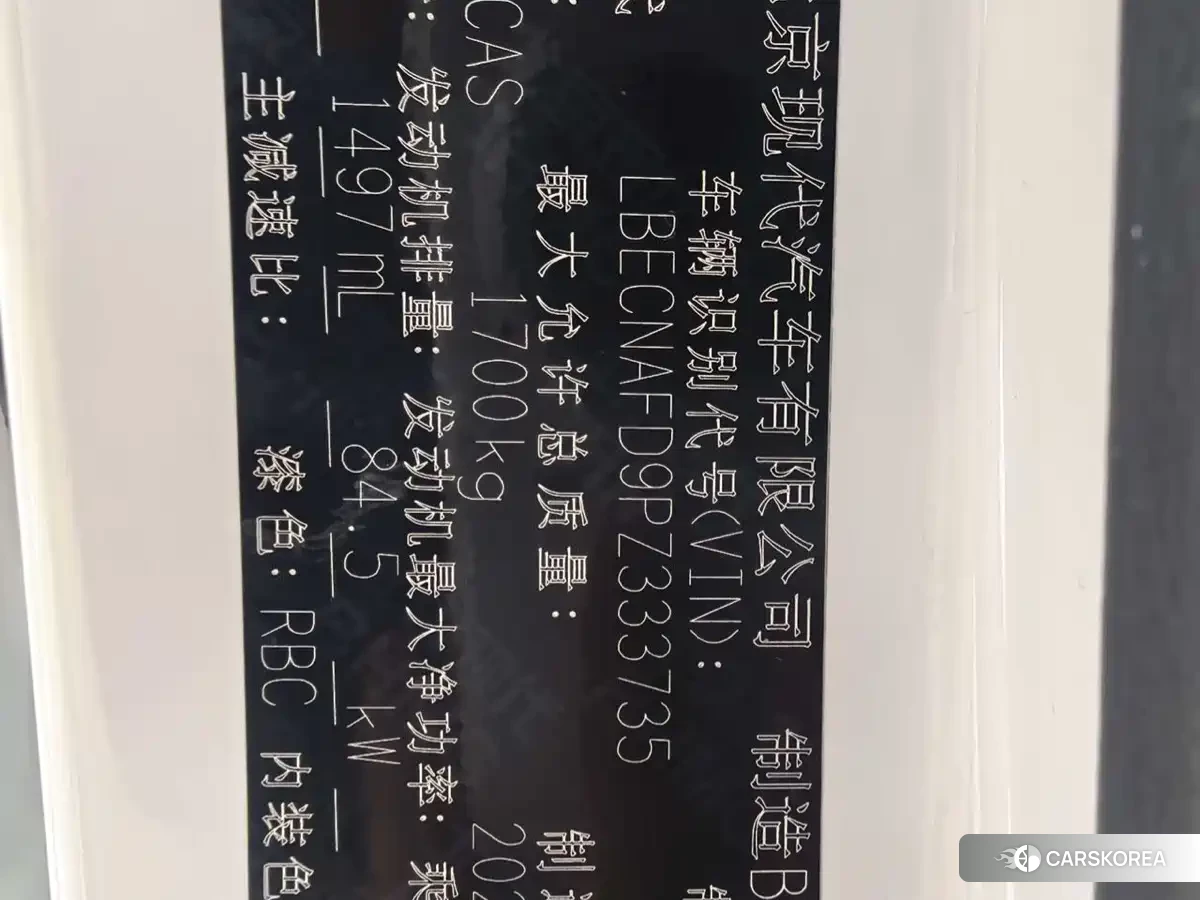 京现代汽车有限公司 制造B
车辆识别代号(VIN):
LBECNAFD9PZ333735
最大允许总质量: 制
CAS 1700kg 202
发动机排量: 发动机最大净功率: 乘
1497mL 84.5 kW
主减速比: 漆色: RBC 内装色
CARSKOREA